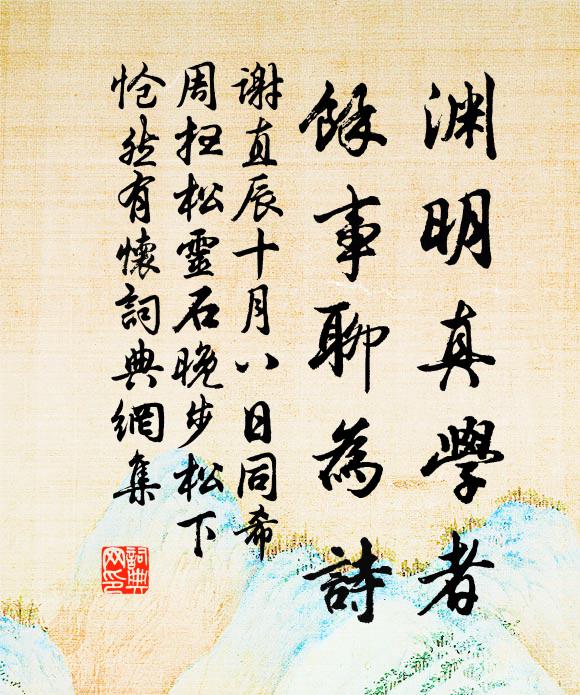 渊明真學者
餘事聊為詩
谢直辰十月八日同希
周扫松靈石晚步松下
怆然有懷詞典網集
詞典網印